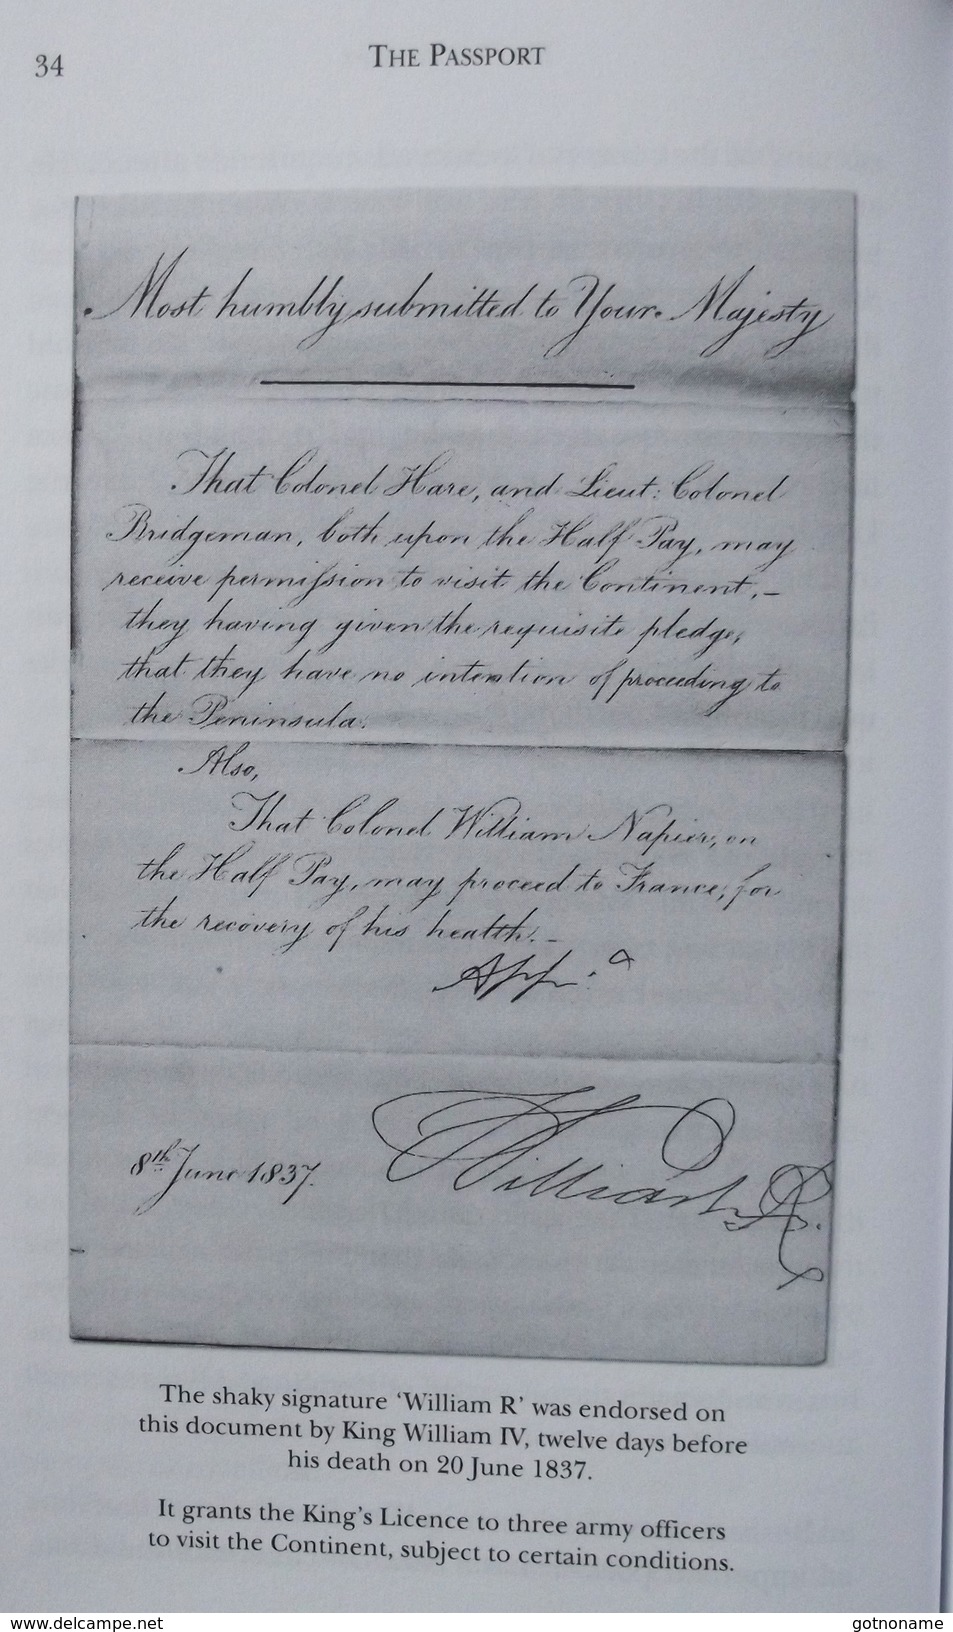 34
THE PASSPORT
Most humbly submitted to Your Majesty
That Colonel Hare, and Lieut: Colonel
Bridgeman, both upon the Half Pay, may
receive permiſsion to visit the Continent,–
they having given the requisite pledge,
that they have no intention of proceeding to
the Peninsula.
Also,
That Colonel William Napier, on
the Half Pay, may proceed to France, for
the recovery of his health.–
App:d
8th June 1837.
William R.
The shaky signature ‘William R’ was endorsed on
this document by King William IV, twelve days before
his death on 20 June 1837.
It grants the King’s Licence to three army officers
to visit the Continent, subject to certain conditions.
www.delcampe.net
gotnoname